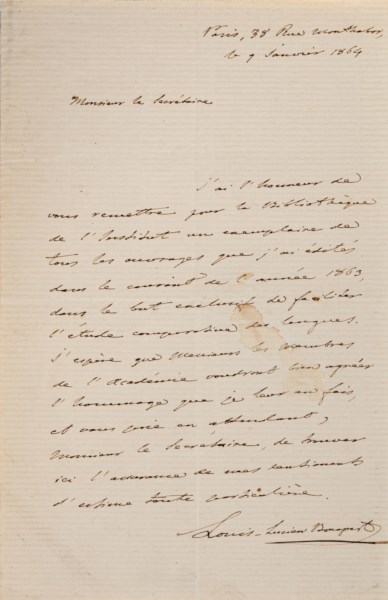 Paris, 38 Rue Monthabor,
le 9 Janvier 1864
Monsieur le Secrétaire
J'ai l'honneur de
vous remettre pour la Bibliothèque
de l'Institut un exemplaire de
tous les ouvrages que j'ai édités
dans le courant de l'année 1863,
dans le but exclusif de faciliter
l'étude comparative des langues.
J'espère que Messieurs les membres
de l'Académie voudront bien agréer
l'hommage que je leur en fais,
et vous prie en attendant,
Monsieur le Secrétaire, de trouver
ici l'assurance de mes sentiments
d'estime toute particulière.
Louis-Lucien Bonaparte